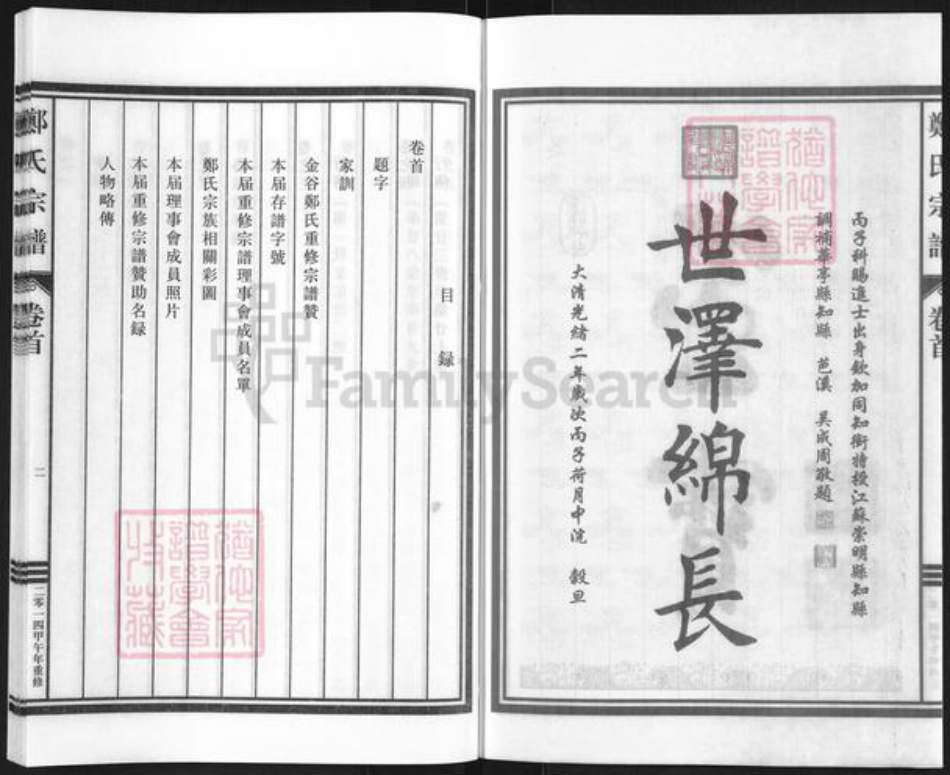 鄭氏宗譜
卷首
丙子科賜進士出身欽加同知銜特授江蘇崇明縣知縣
調補華亭縣知縣 芭溪 吴成周敬題
世澤綿長
大清光緒二年歲次丙子荷月中浣 穀旦
目録
卷首
題字
家訓
金谷鄭氏重修宗譜贊
本届存譜字號
本届重修宗譜理事會成員名單
鄭氏宗族相關彩圖
本届理事會成員照片
本届重修宗譜贊助名録
人物略傳
鄭氏宗譜
卷首
二
二零一四甲午年重修
FamilySearch